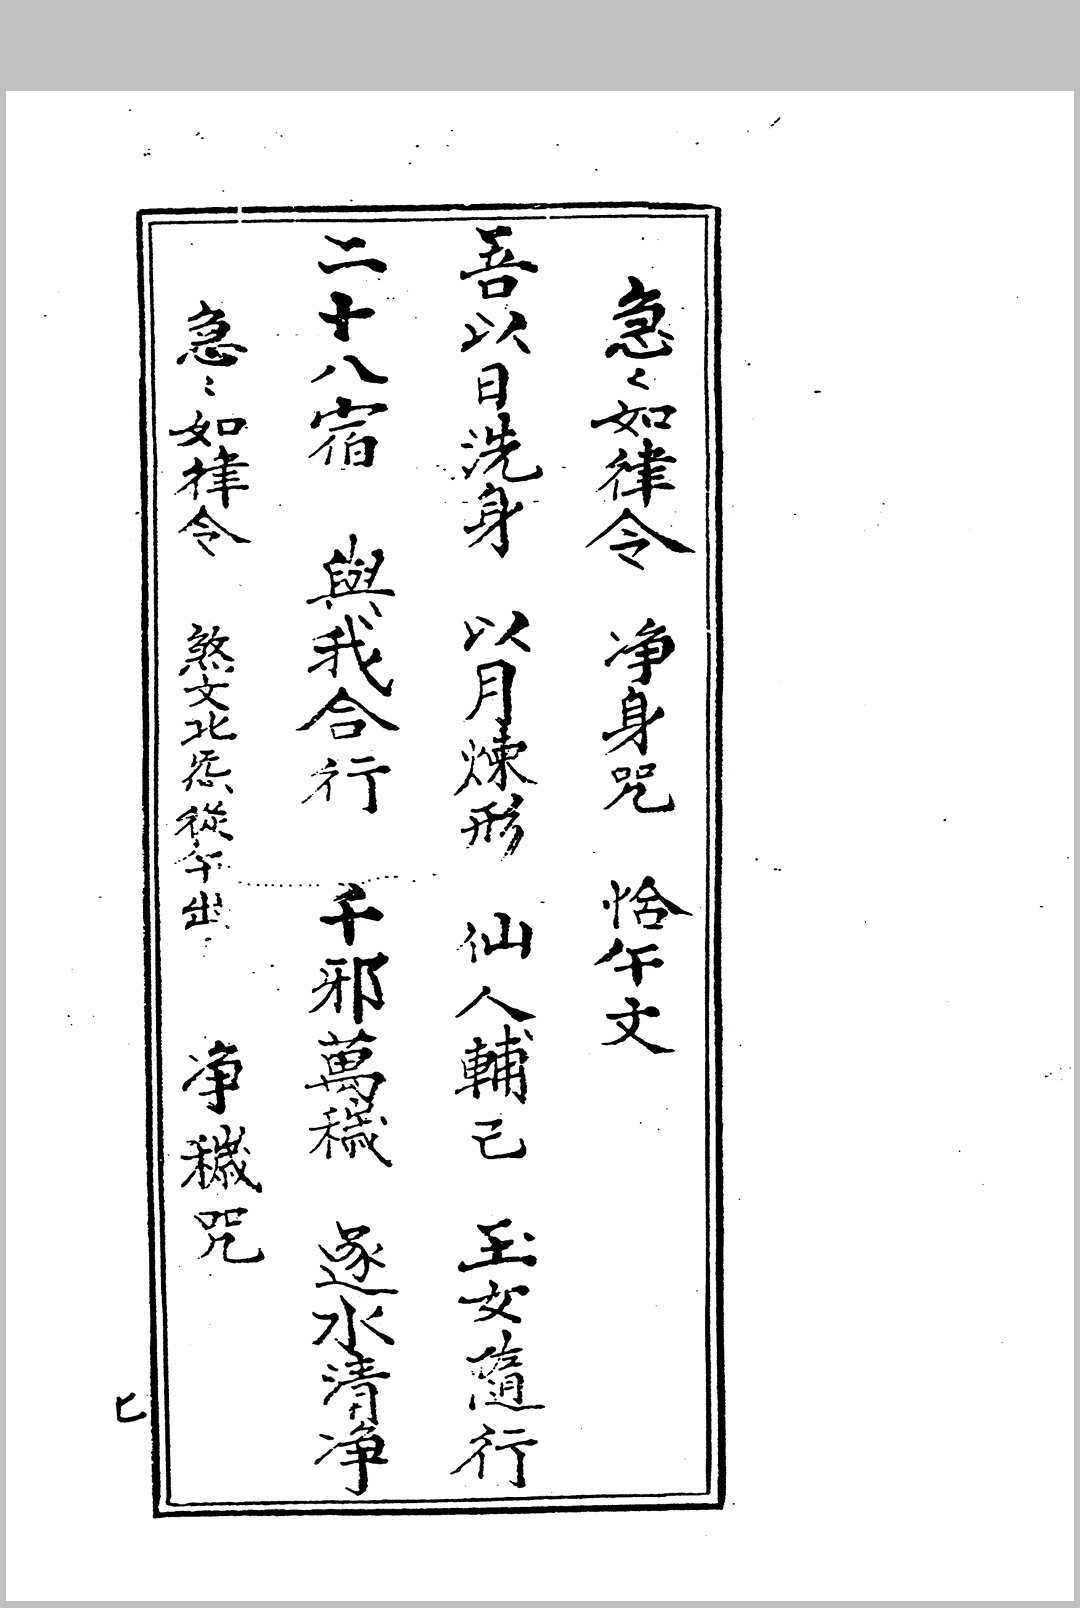 急々如律令 净身咒 恰午文
吾以日洗身 以月煉形 仙人輔己 玉女隨行
二十八宿 與我合行 千邪萬穢 逐水清净
急〻如律令 煞文北炁從午出 净穢咒